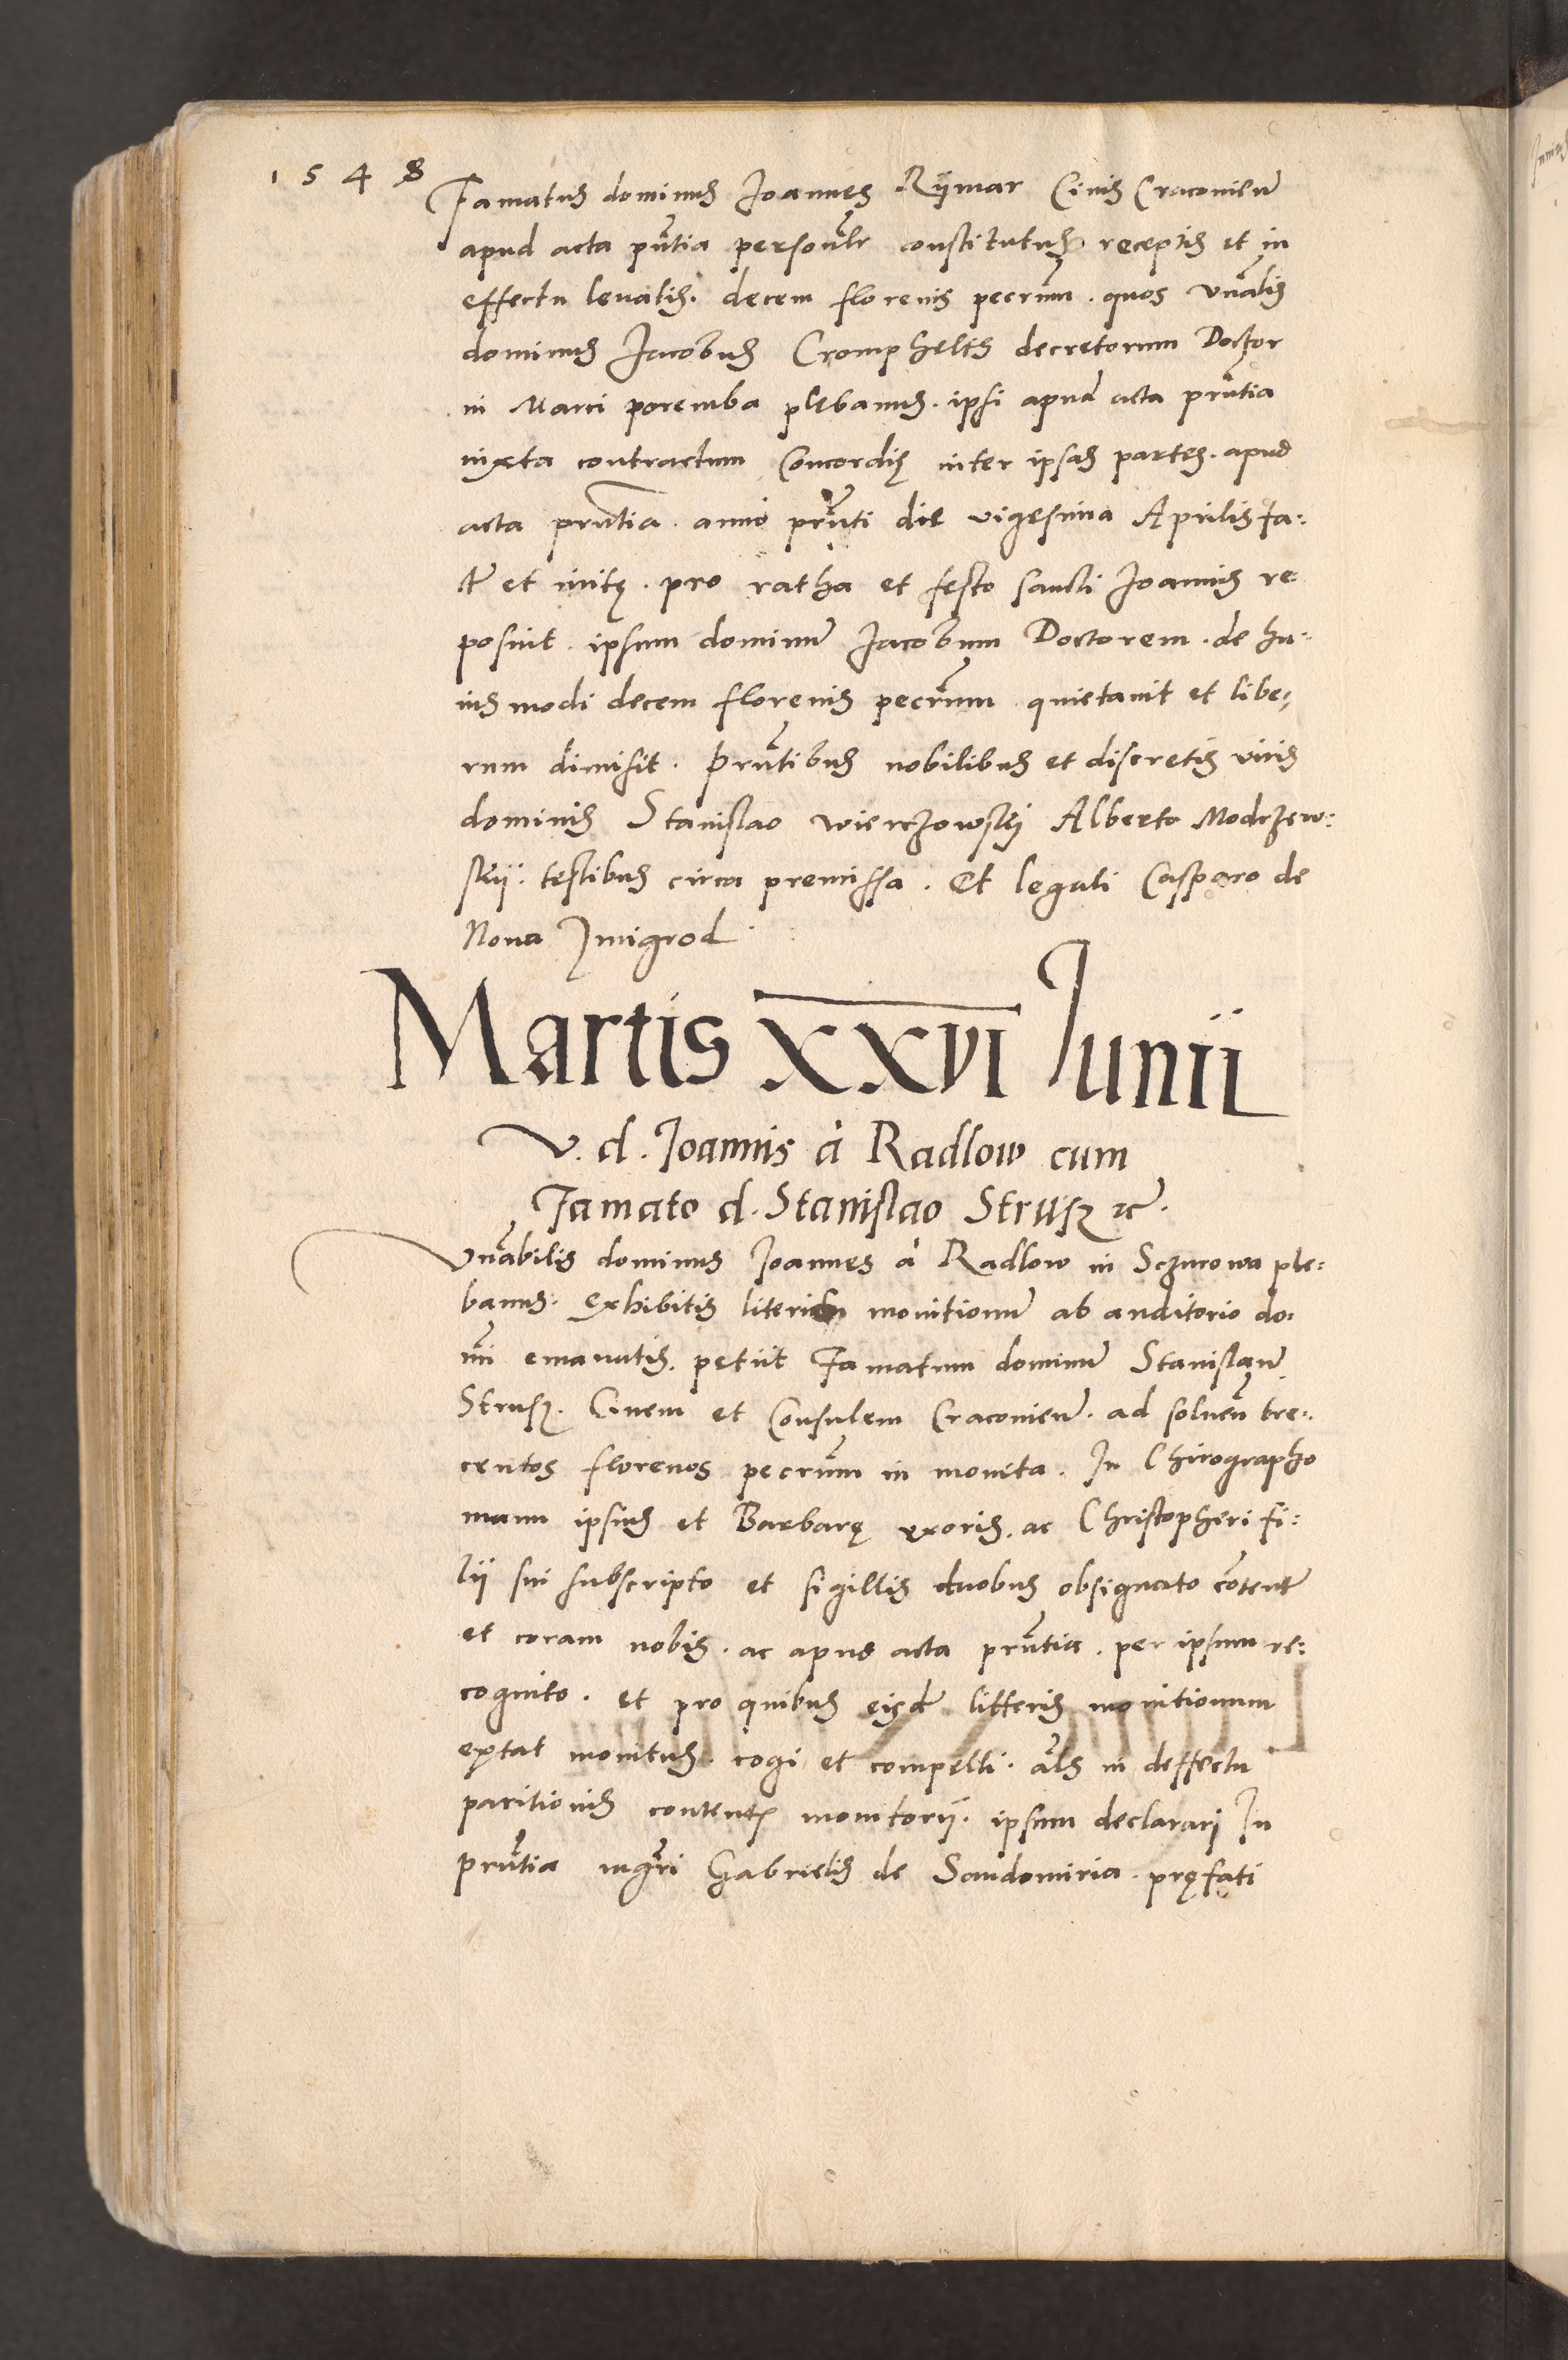 1548
Famatus dominus Joannes Rÿmar Civis Cracovien̄
apud acta pn̄tia personalr̄ constitutus receptis et in
effectu levatis. decem florenis pecun̄. quos Vn̄alis
dominus Jacobus Cromphelth decretorum Doctor
in Marci poremba plebanus. ipsi apud acta prn̄tia
iuxta contractum Concordię inter ipsas partes. apud
acta prn̄tia. anno prn̄ti die vigesima Aprilis fa:
ctę et initę. pro ratha et festo sancti Joannis re
posuit. ipsum dominū Jacobum Doctorem. de hu:
iusmodi decem florenis pecun̄ quietavit et libe:
rum dimisit. Prn̄tibus nobilibus et discretis viris
dominis Stanislao Wierzowskÿ Alberto Modrzew:
skii. testibus circa premissa. Et legali Casparo de
Nova Zmigrod
Martis XXVI Junii
V. d. Joannis à Radlow cum
Famato d. Stanislao Strusz etc.
Vn̄abilis dominus Joannes à Radlow in Sczurowa ple:
banus. Exhibitis literis monitionū ab auditorio do:
mi emanatis. petiit Famatum dominū Stanislaū
Strusz. Civem et Consulem Cracovien̄. ad solven̄ tre:
centos florenos pecun̄ in moneta. In Chirographo
manu ipsius et Barbarę uxoris. ac Christopheri fi:
lii sui subscripto et sigillis duobus obsignato cōtentꝭ
et coram nobis. ac apud acta prn̄tia. per ipsum re:
cognito. et pro quibus eisdē litteris monitionum
extat monitus. cogi et compelli. al̄s in deffectu
paritionis contentꝭ monitorÿ. ipsum declarari In
prn̄tia mgr̄i Gabrielis de Sandomiria. pręfati